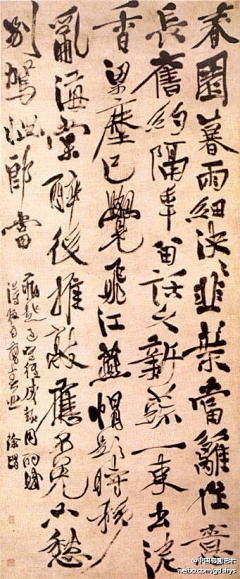 春園暮雨細泱泱韭葉當籬作意
長舊約隔年留話久新蔬一束出泥
香梁塵已覺飛江燕帽影時移
亂海棠醉後推敲應不免只愁
別駕惱郎當
徐渭
weibo.com/gdshys